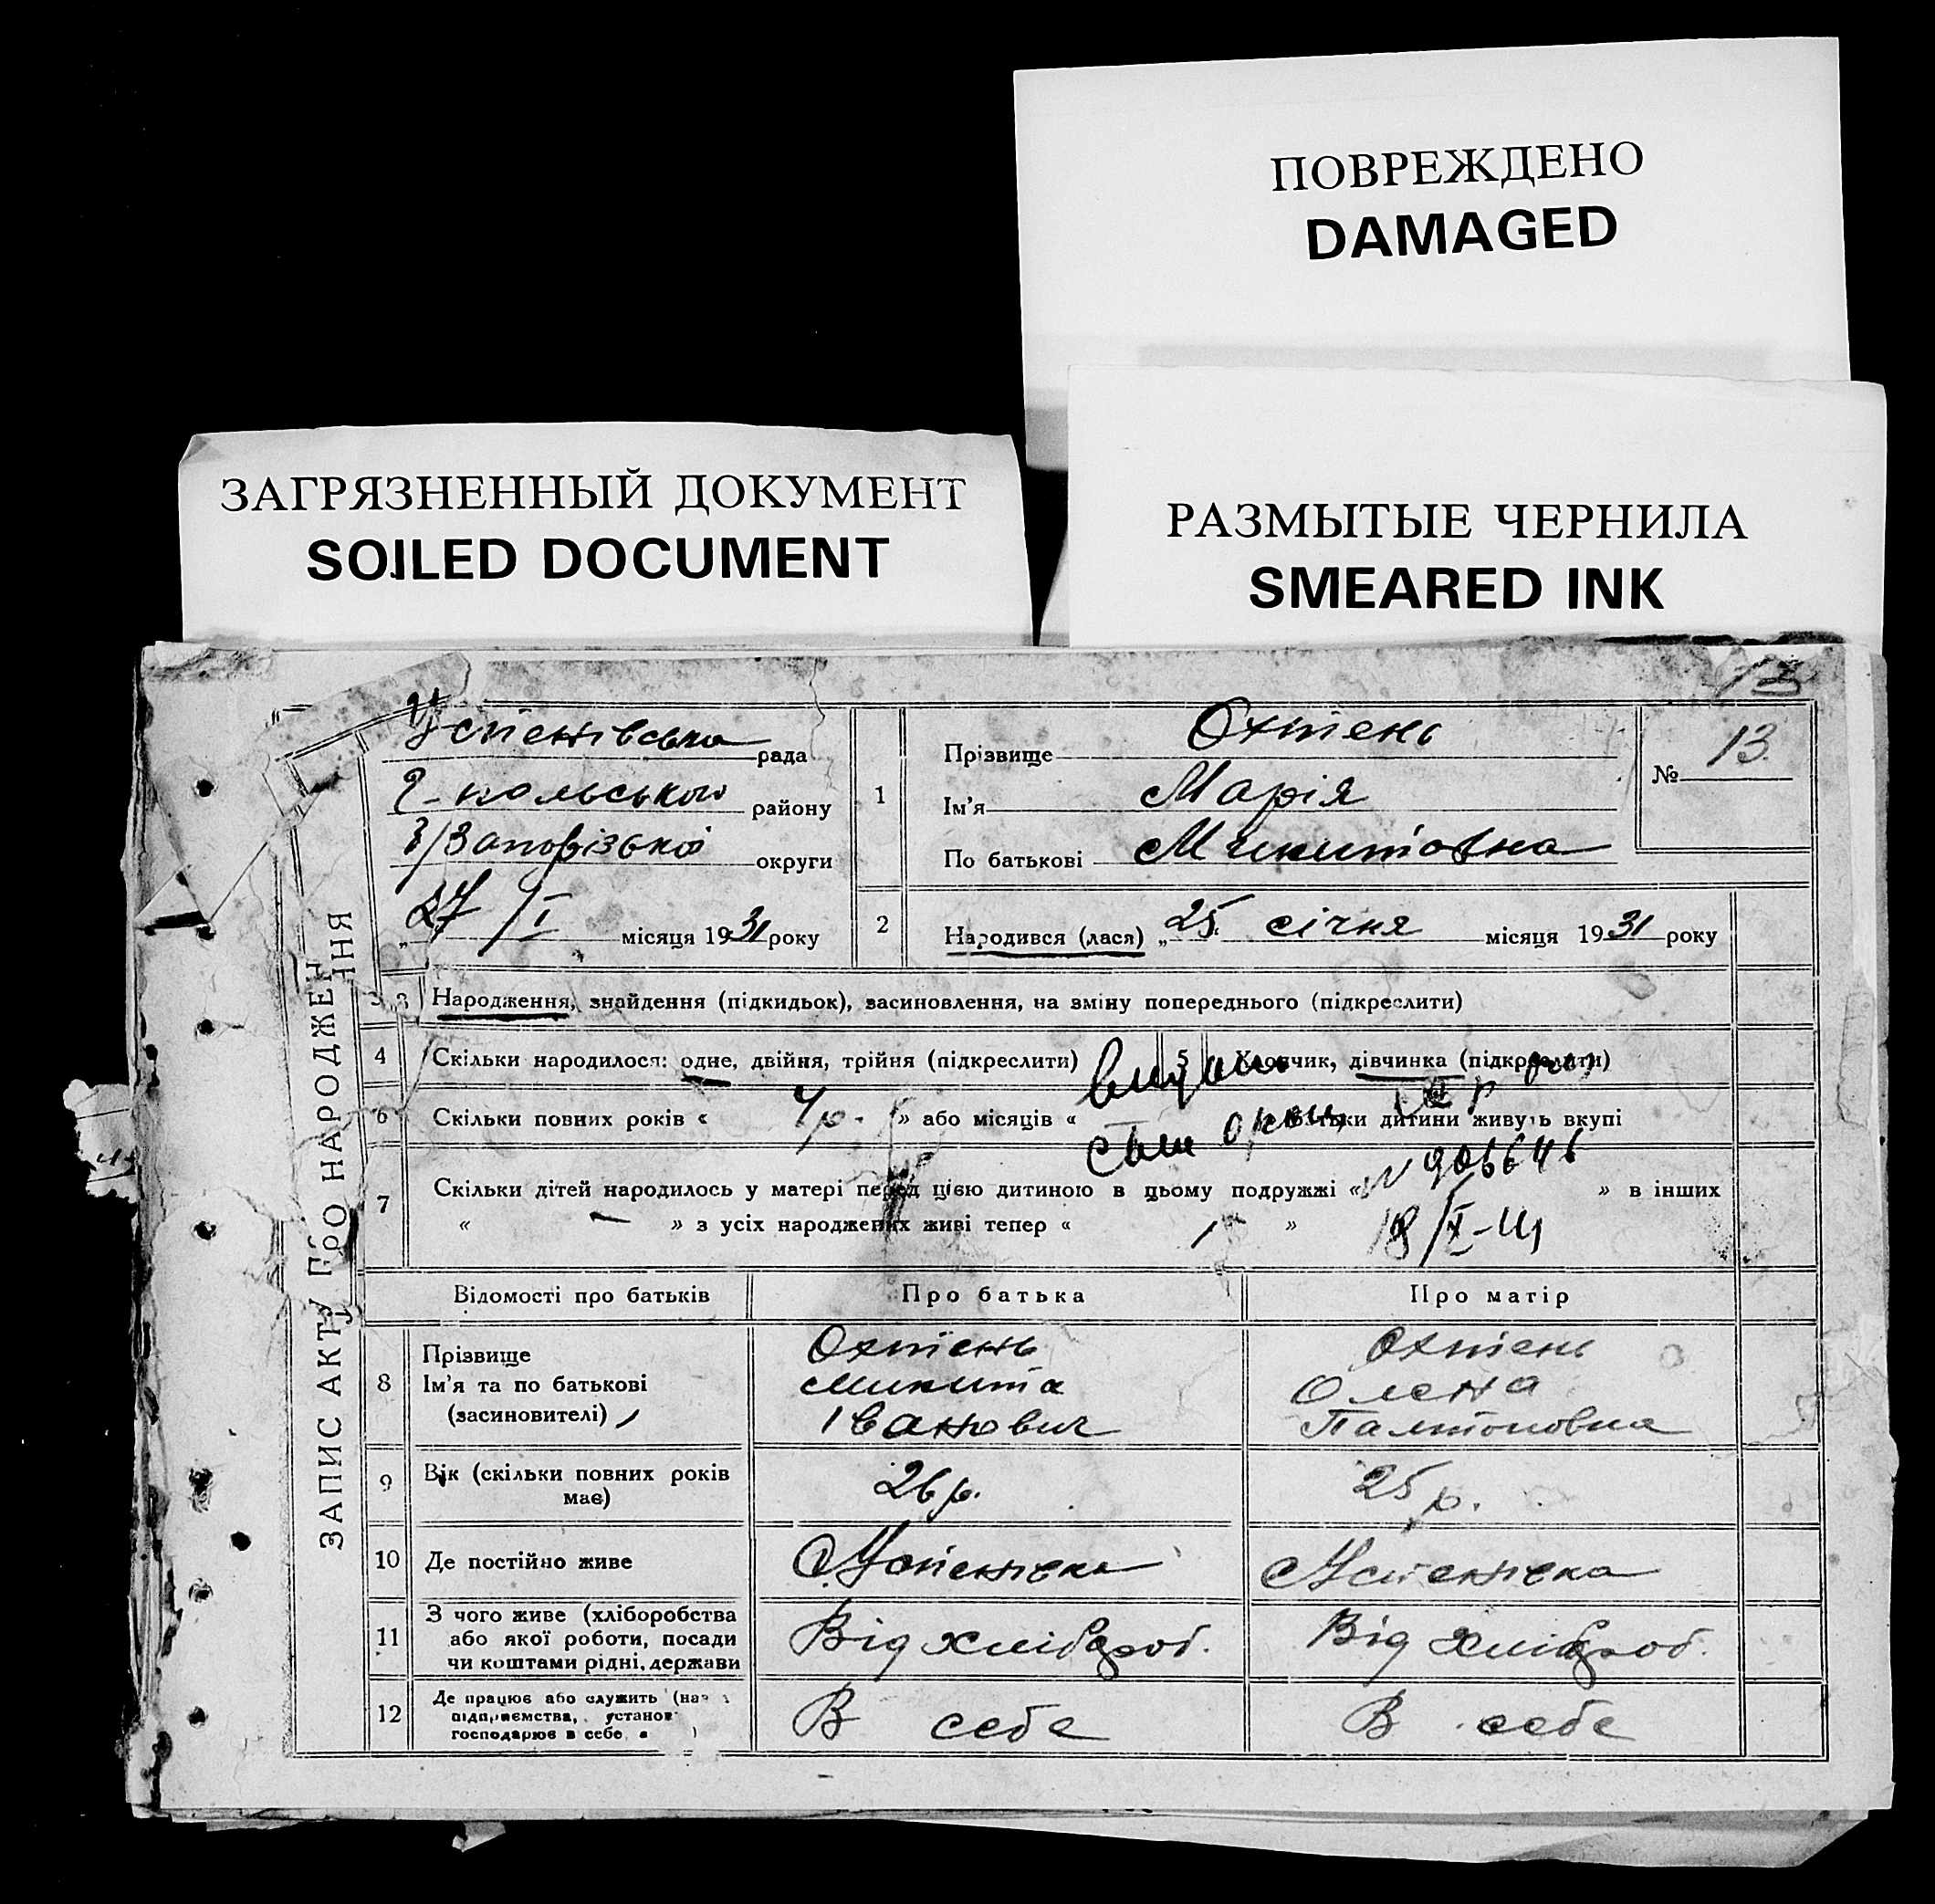 ПОВРЕЖДЕНО
DAMAGED
ЗАГРЯЗНЕННЫЙ ДОКУМЕНТ
SOILED DOCUMENT
РАЗМЫТЫЕ ЧЕРНИЛА
SMEARED INK
13
ЗАПИС АКТУ ПРО НАРОДЖЕННЯ
Успенівська рада
Г-польського району
Запорізької округи
„27/I місяця 1931 року
1
Прізвище Охтень
Ім'я Марія
По батькові Микитовна
№ 13
2
Народився (лася) „25" січня місяця 1931 року
3 Народження, знайдення (підкидьок), засиновлення, на зміну попереднього (підкреслити)
4 Скільки народилося: одне, двійня, трійня (підкреслити) 5 Хлопчик, дівчинка (підкреслити)
6 Скільки повних років « 4р. » або місяців « батьки дитини живуть вкупі
7 Скільки дітей народилось у матері перед цією дитиною в цьому подружжі « » в інших
« — » з усіх народжених живі тепер « »
№ 906646
18/X-41
Відомості про батьків Про батька Про матір
8 Прізвище
Ім'я та по батькові
(засиновителі)
Охтень
Микита
Іванович
Охтень
Олена
Палтоновна
9 Вік (скільки повних років
має)
26 р.
25 р.
10 Де постійно живе
с Успенівка
с Успенівка
11 З чого живе (хліборобства
або якої роботи, посади
чи коштами рідні, держави
Від хлібороб.
Від хлібороб.
12 Де працює або служить
підприємства, установ
господарює в себе
В себе
В себе